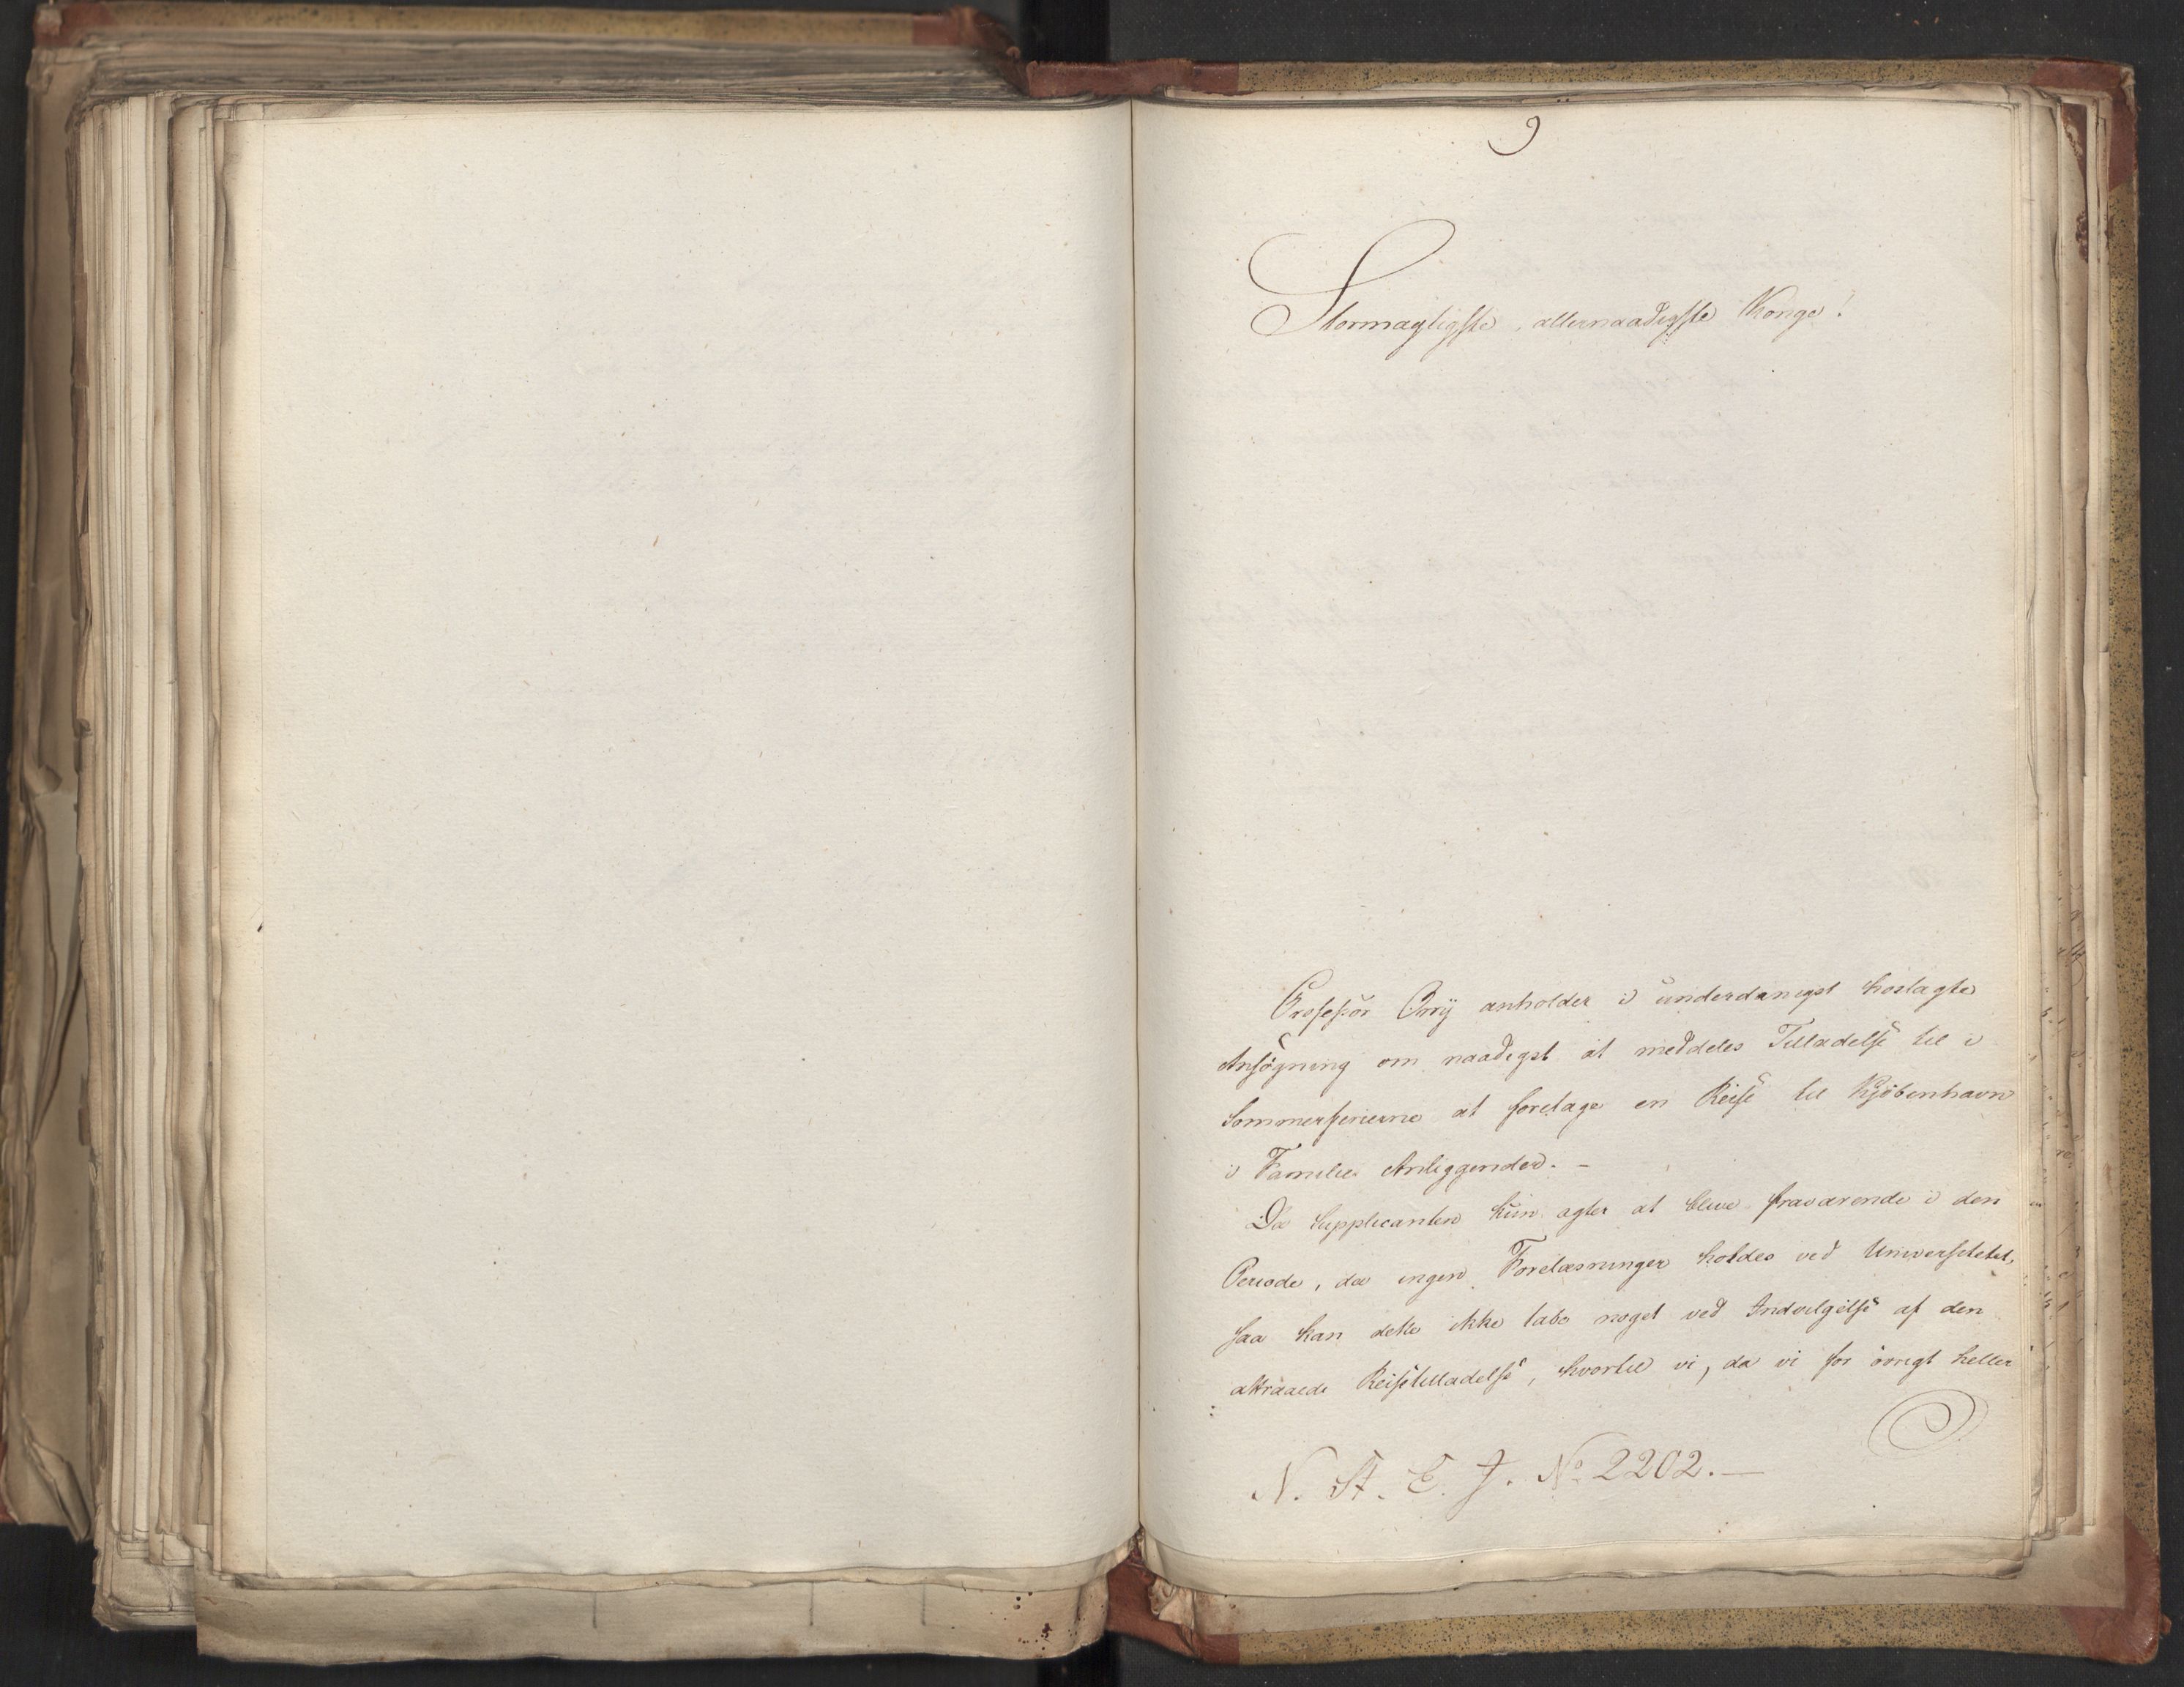 9
Stormægtigste, allernaadigste Konge!
Professor anholder i underdanigst hoslagte
Ansögning om naadigst at meddeles Tilladelse til i
Sommerferierne at foretage en Reise til Kjöbenhavn
i Familie Anliggender. –
Da Supplicanten kun agter at blive fraværende i den
Periode, da ingen Forelæsninger holdes ved Universitetet,
saa kan dette ikke tabe noget ved Indvilgelse af den
attraaede Reisetilladelse, hvortil vi, da vi for övrigt heller
N. St. E. J. No 2202. —